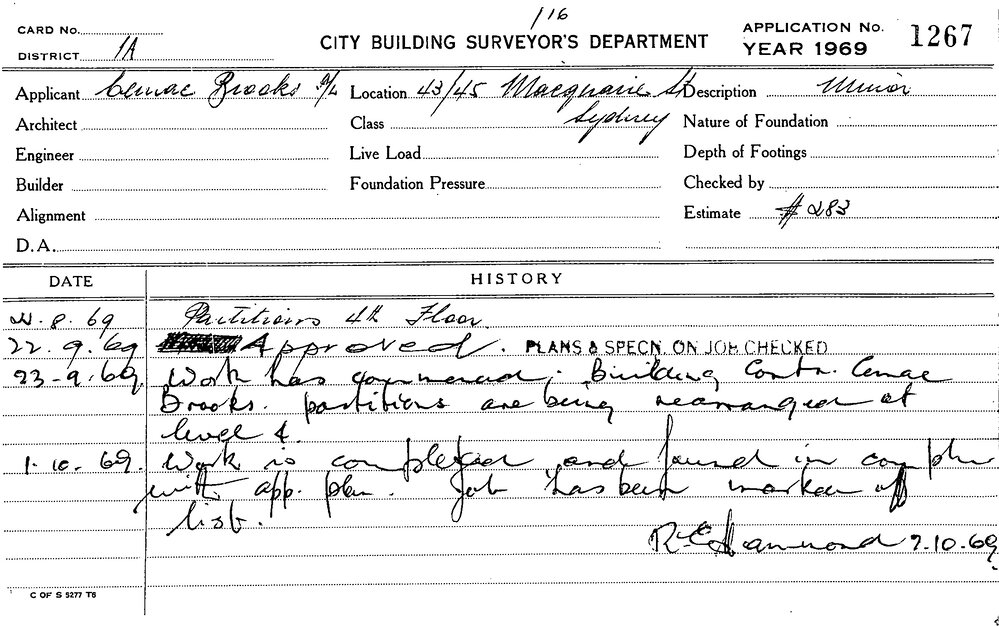 116
CARD No.
DISTRICT 1A
CITY BUILDING SURVEYOR'S DEPARTMENT
APPLICATION No. 1267
YEAR 1969
Applicant Cemac Brooks P/L Location 43/45 Macquarie St Sydney Description Minor
Architect Class Nature of Foundation
Engineer Live Load Depth of Footings
Builder Foundation Pressure Checked by
Alignment Estimate $ 283
D.A.
DATE HISTORY
.8.69 Partitions 4th Floor.
22.9.69 Approved. PLANS & SPECN. ON JOB CHECKED
23-9.69 Work has commenced; Building Contr. Cemac
Brooks. partitions are being rearranged at
level 4.
1.10.69. Work is completed and found in compln
with app. plan. Job has been marked off
list.
R E Hammond 2.10.69
C OF S 5277 T8